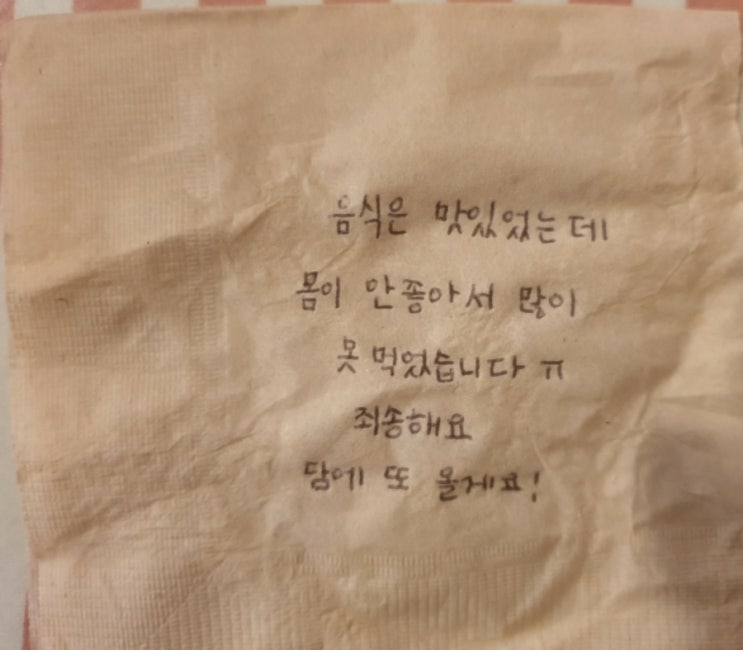 음식은 맛있었는데
몸이 안좋아서 많이
못 먹었습니다 ㅠ
죄송해요
담에 또 올게요!